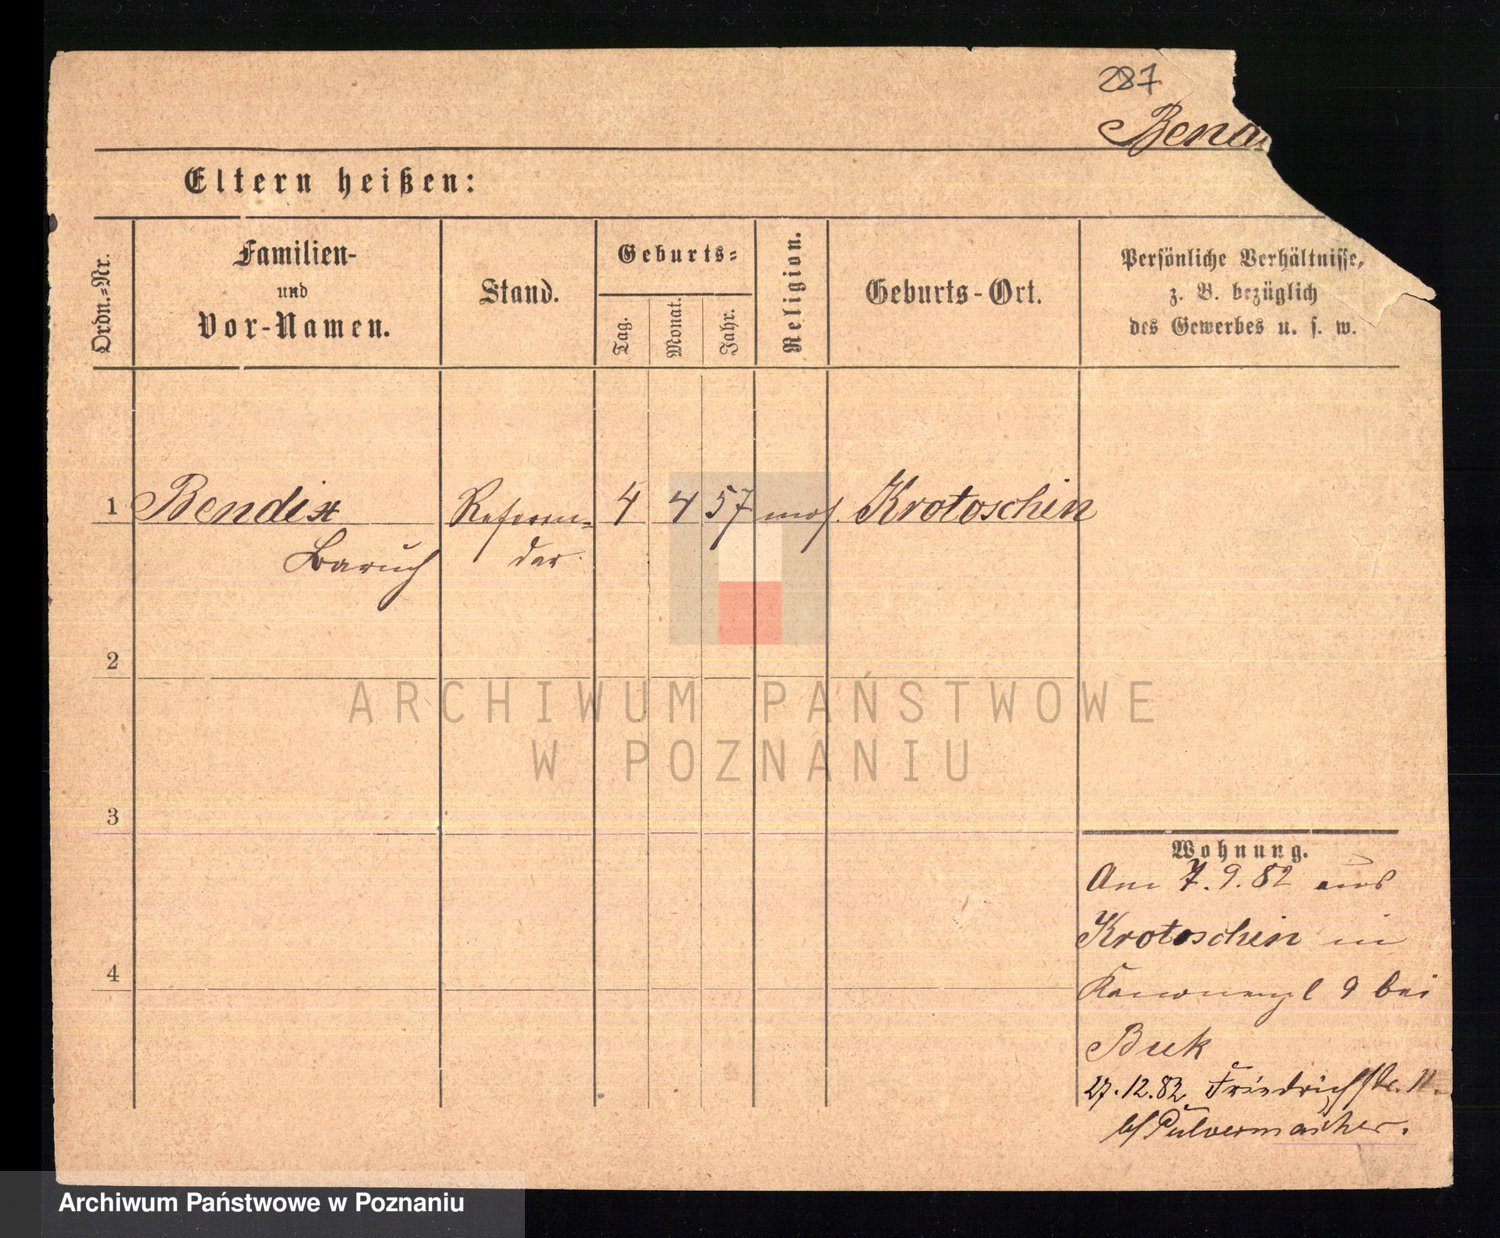 287
Bena
Eltern heißen:
Ordn.-Nr.
Familien-
und
Vor-Namen.
Stand.
Geburts-
Tag.
Monat.
Jahr.
Religion.
Geburts-Ort.
Persönliche Verhältnisse,
z. B. bezüglich
des Gewerbes u. s. w.
1 Bendix Referen- 4 4 57 mos. Krotoschin
Baruch dar
2
ARCHIWUM PAŃSTWOWE
W POZNANIU
3
Wohnung.
Am 7.9.82 aus
Krotoschin in
4
Kanonenpl 9 bei
Buk
27.12.82 Friedrichstr. 11.
b/ Pulvermacher.
Archiwum Państwowe w Poznaniu